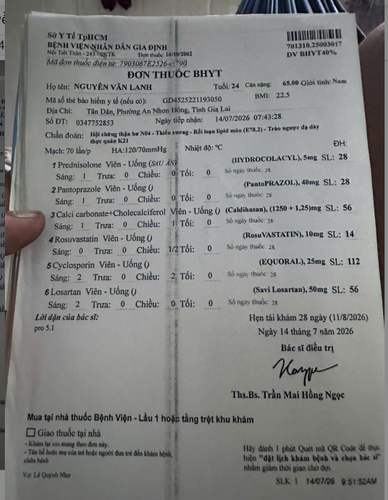 Sở Y Tế TpHCM
BỆNH VIỆN NHÂN DÂN GIA ĐỊNH
701310.25003017
DV BHYT40%
Mã đơn thuốc điện tử: 7903067E2526-c
ĐƠN THUỐC BHYT
Họ tên: NGUYỄN VĂN LANH Tuổi: 24 Cân nặng: 65.00 Giới tính: Nam
Mã số thẻ bảo hiểm y tế (nếu có): GD4525221193050 BMI: 22.5
Địa Chỉ: Tân Dân, Phường An Nhơn Đông, Tỉnh Gia Lai
Số ĐT: 0347752853 Ngày tiếp nhận: 14/07/2026 07:43:28
Chẩn đoán: Hội chứng thận hư N04 - Thiếu xương - Rối loạn lipid máu (E78.2) - Trào ngược dạ dày thực quản K21
ĐH:
Mạch: 70 lần/p HA:120/70mmHg Nhiệt độ: °C
1 Prednisolone Viên - Uống (SAU ĂN) (HYDROCOLACYL), 5mg SL: 28
Sáng: 1 Trưa: 0 Chiều: 0 Tối: 0 Số ngày thuốc: 28
2 Pantoprazole Viên - Uống () (PantoPRAZOL), 40mg SL: 28
Sáng: 1 Trưa: 0 Chiều: 0 Tối: 0 Số ngày thuốc: 28
3 Calci carbonate+Cholecalciferol Viên - Uống () (Caldihasan), (1250 + 1,25)mg SL: 56
Sáng: 1 Trưa: 0 Chiều: 1 Tối: 0 Số ngày thuốc: 28
4 Rosuvastatin Viên - Uống () (RosuVASTATIN), 10mg SL: 14
Sáng: 0 Trưa: 0 Chiều: 1/2 Tối: 0 Số ngày thuốc: 28
5 Cyclosporin Viên - Uống () (EQUORAL), 25mg SL: 112
Sáng: 2 Trưa: 0 Chiều: 2 Tối: 0 Số ngày thuốc: 28
6 Losartan Viên - Uống () (Savi Losartan), 50mg SL: 56
Sáng: 2 Trưa: 0 Chiều: 0 Tối: 0 Số ngày thuốc: 28
Lời dặn của bác sĩ: Hẹn tái khám 28 ngày (11/8/2026)
pro 5.1 Ngày 14 tháng 7 năm 2026
Bác sĩ điều trị
Ths.Bs. Trần Mai Hồng Ngọc
Mua tại nhà thuốc Bệnh Viện - Lầu 1 hoặc tầng trệt khu khám
Giao thuốc tại nhà
- Khám lại xin mang theo đơn này.
- Tên bố hoặc mẹ của trẻ hoặc người đưa trẻ đến khám bệnh, chữa bệnh
Vy: Lê Quỳnh Như
Hãy dành 1 phút Quét mã QR Code để thực hiện "đặt lịch khám bệnh và chọn bác sĩ" nhằm giảm thời gian chờ đợi.
SLK: 1 14/07/26 9:51:52AM